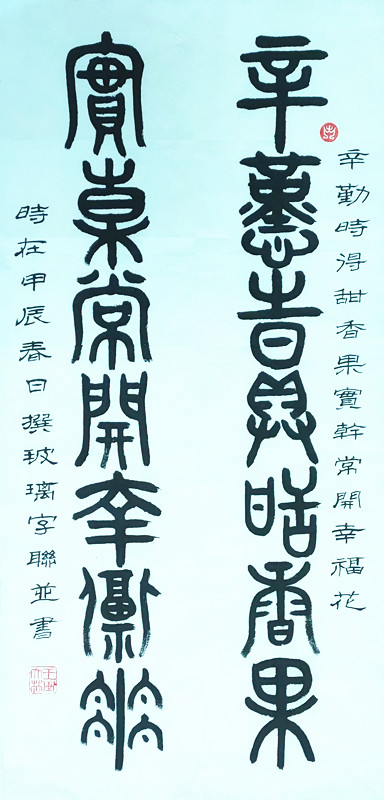 辛勤時得甜香果實幹常開幸福花
辛勤時得甜香果
實幹常開幸福花
時在甲辰春日撰玻璃字聯並書